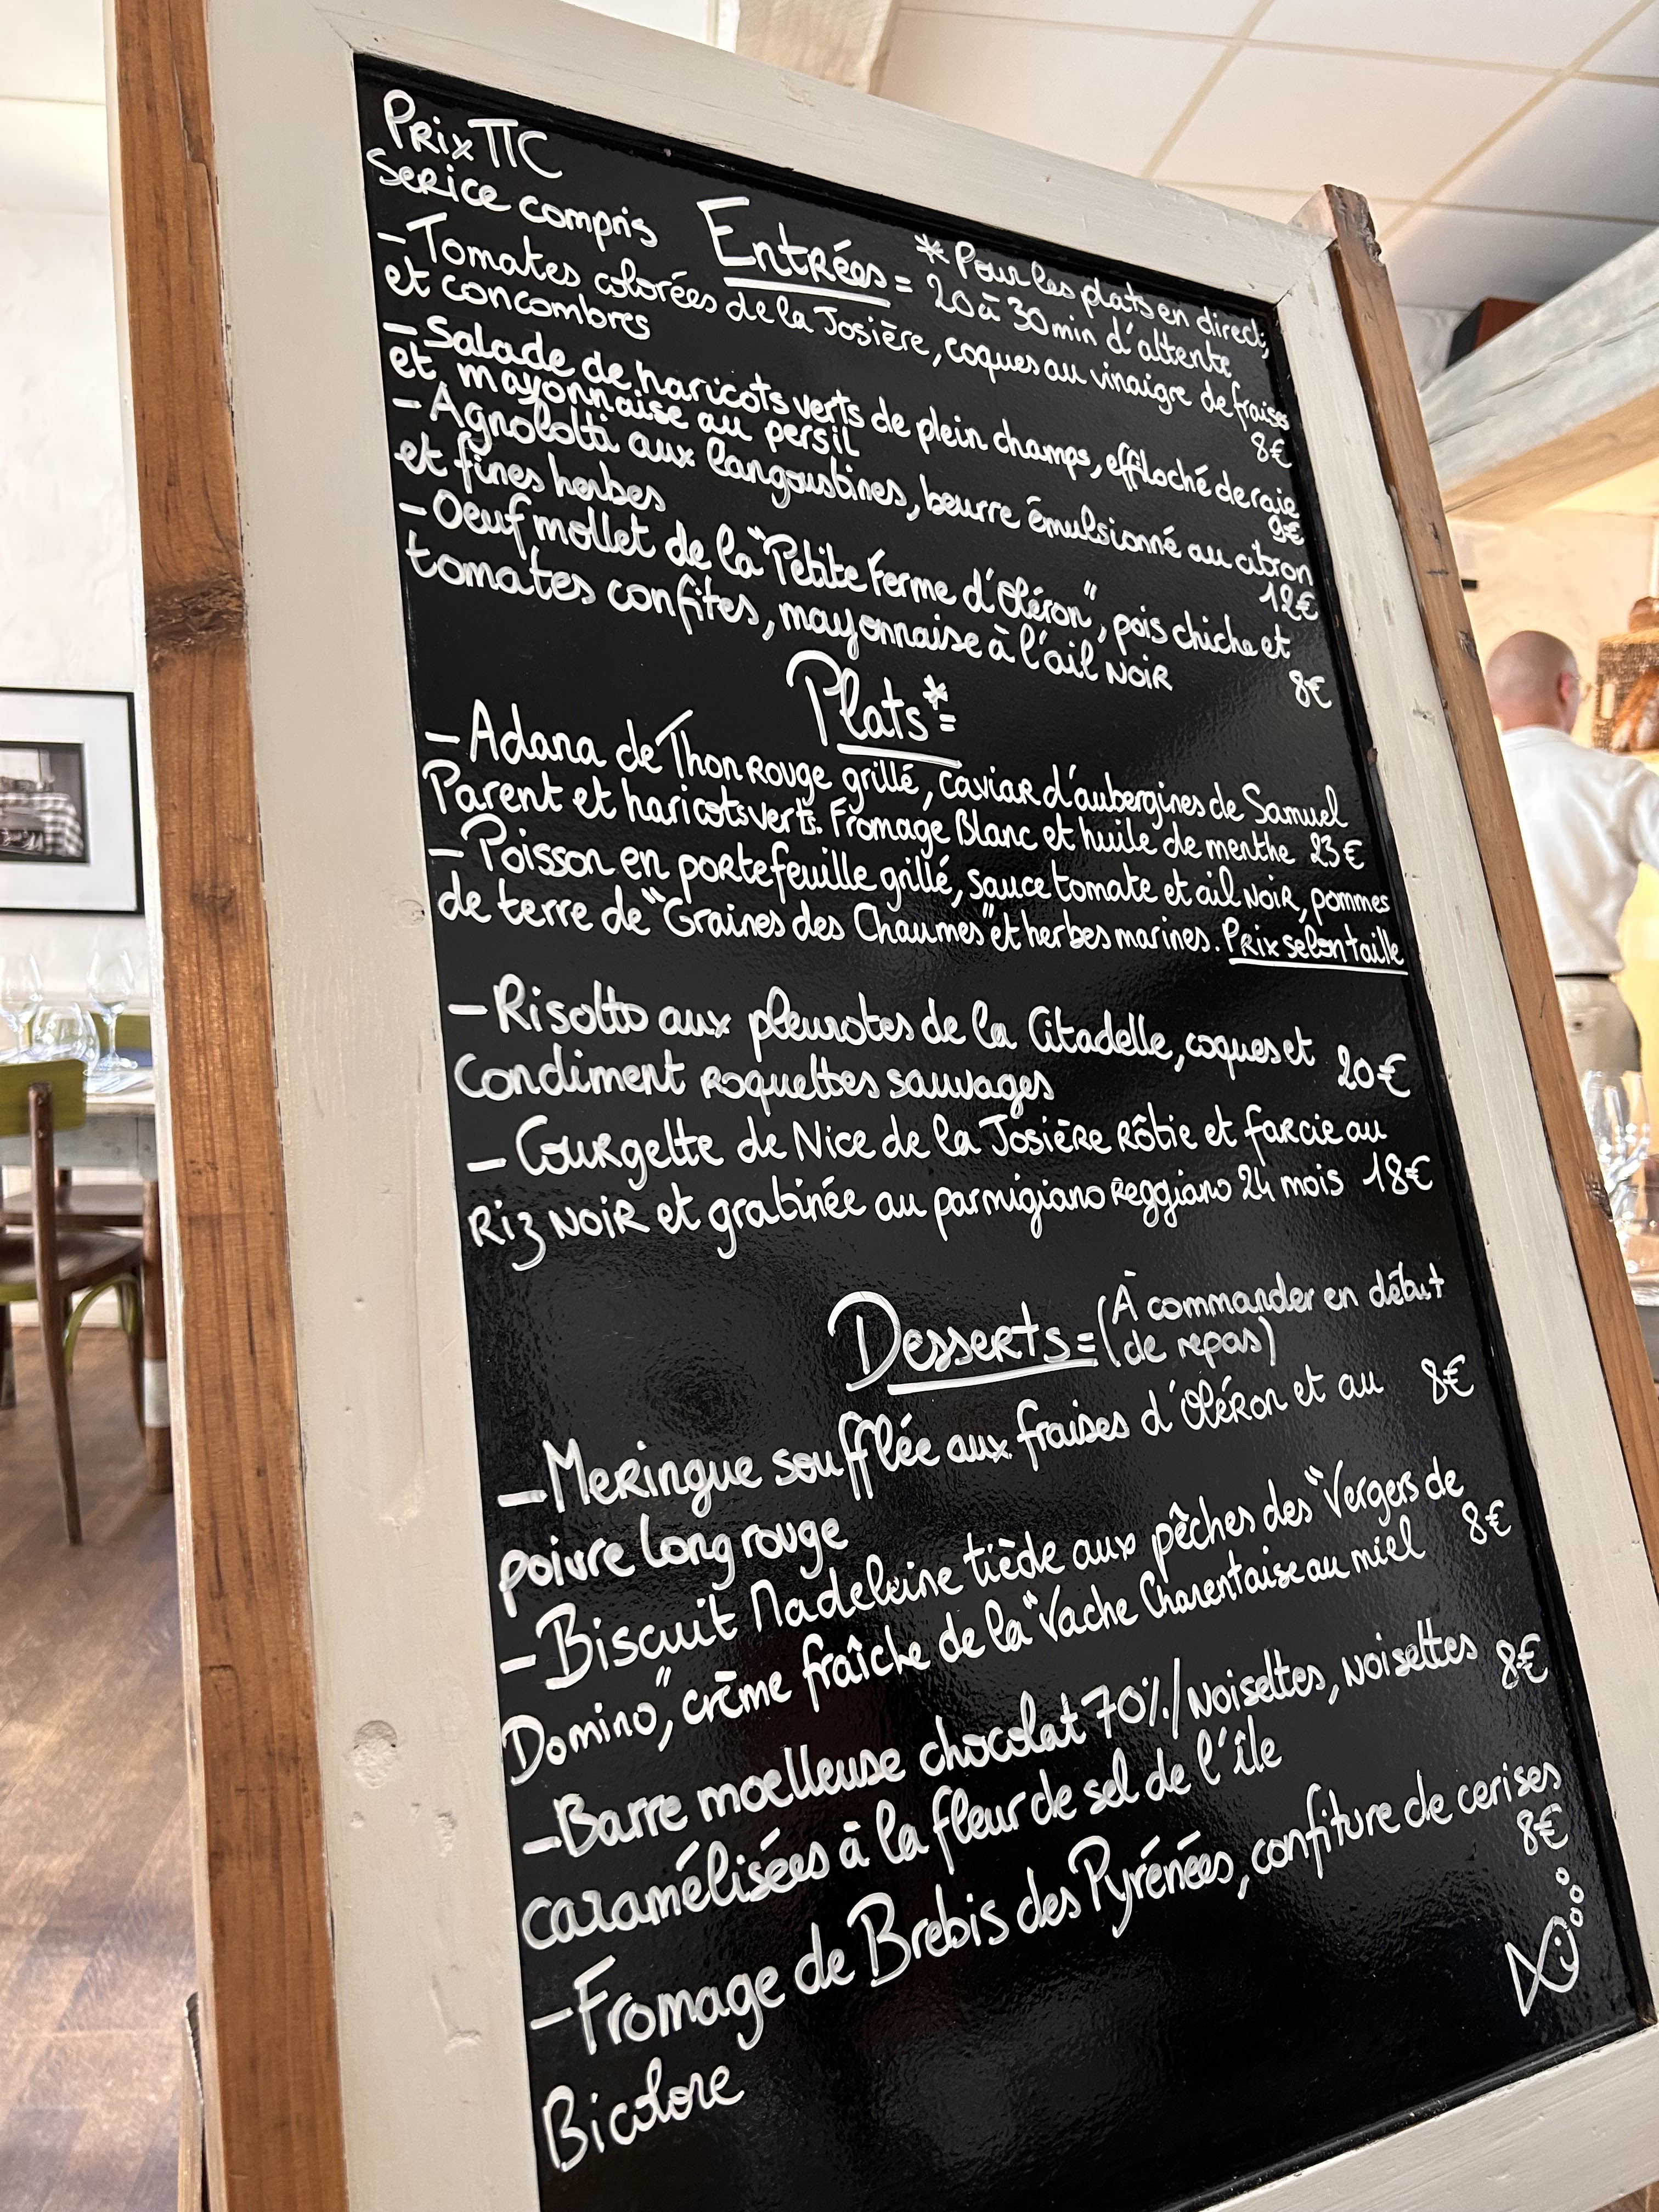 Prix TTC
Serice compris
Entrées =
* Pour les plats en direct,
20 à 30 min d'attente
- Tomates colorées de la Josière, coques au vinaigre de fraises
et concombres 8€
- Salade de haricots verts de plein champs, effiloché de raie
et mayonnaise au persil 9€
- Agnolotti aux langoustines, beurre émulsionné au citron
et fines herbes 12€
- Oeuf mollet de la "Petite Ferme d'Oléron", pois chiche et
tomates confites, mayonnaise à l'ail noir 8€
Plats* =
- Adana de Thon rouge grillé, caviar d'aubergines de Samuel
Parent et haricots verts. Fromage Blanc et huile de menthe 23€
- Poisson en portefeuille grillé, sauce tomate et ail noir, pommes
de terre de "Graines des Chaumes" et herbes marines. Prix selon taille
- Risotto aux pleurotes de la Citadelle, coques et
Condiment roquettes sauvages 20€
- Courgette de Nice de la Josière rôtie et farcie au
riz noir et gratinée au parmigiano reggiano 24 mois 18€
Desserts = (À commander en début
de repas)
- Meringue soufflée aux fraises d'Oléron et au 8€
poivre long rouge
- Biscuit Madeleine tiède aux pêches des "Vergers de
Domino", crème fraîche de la "Vache Charentaise au miel 8€
- Barre moelleuse chocolat 70%/noisettes, noisettes 8€
caramélisées à la fleur de sel de l'île
- Fromage de Brebis des Pyrénées, confiture de cerises 8€
Bicolore